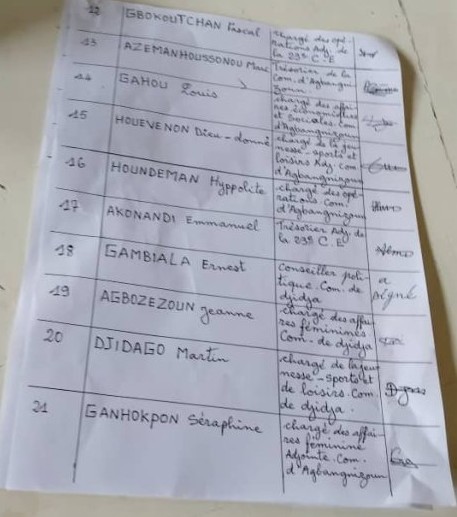 12 GBOKOUTCHAN Pascal
chargé des opé-
rations Adj. de
la 23e C.E
13 AZEMANHOUSSONOU Marc
Trésorier de la
Com. d'Agbangni
zoun.
14 GAHOU Louis
chargé des affai-
res économiques
et Sociales. Com
d'Agbangnizoun
15 HOUEVENON Dieu-donné
chargé de la jeu-
nesse-sports et
loisirs Adj. Com
d'Agbangnizoun
16 HOUNDEMAN Hyppolite
chargé des opé-
rations. Com.
d'Agbangnizoun
17 AKONANDI Emmanuel
Trésorier Adj. de
la 23e C.E
18 GAMBIALA Ernest
Conseiller poli-
tique. Com. de
djidja
a
signé
19 AGBOZEZOUN Jeanne
chargé des affai
res féminines
Com. de djidja
20 DJIDAGO Martin
chargé de la jeu
nesse-sports et
de loisirs. Com.
de djidja.
21 GANHOKPON Séraphine
chargé des affai-
res féminine
Adjointe. Com.
d'Agbangnizoun